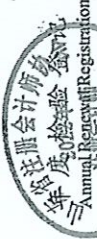 省注册会计师
年度检验登记
Annual Renewal Registration